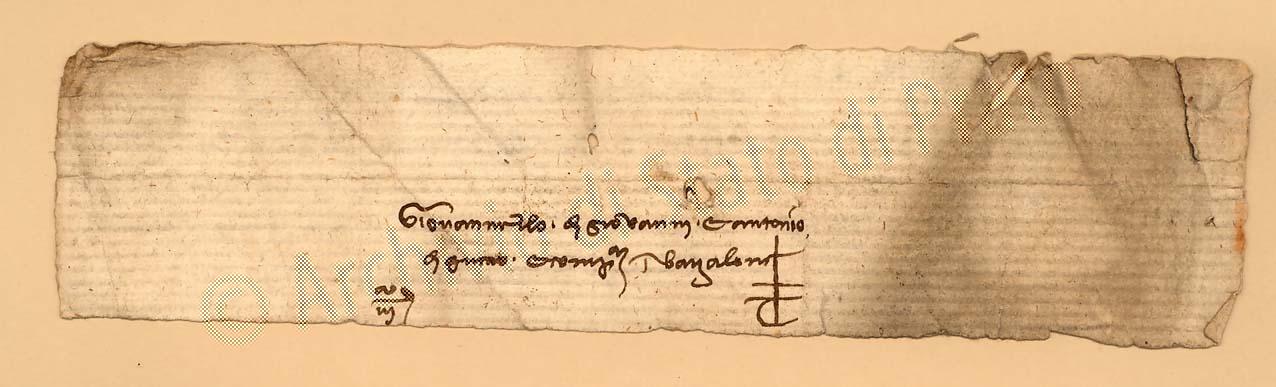 Giovannello di giovanni e antonio
di guccio e comp in barzalona
© Archivio di Stato di Prato